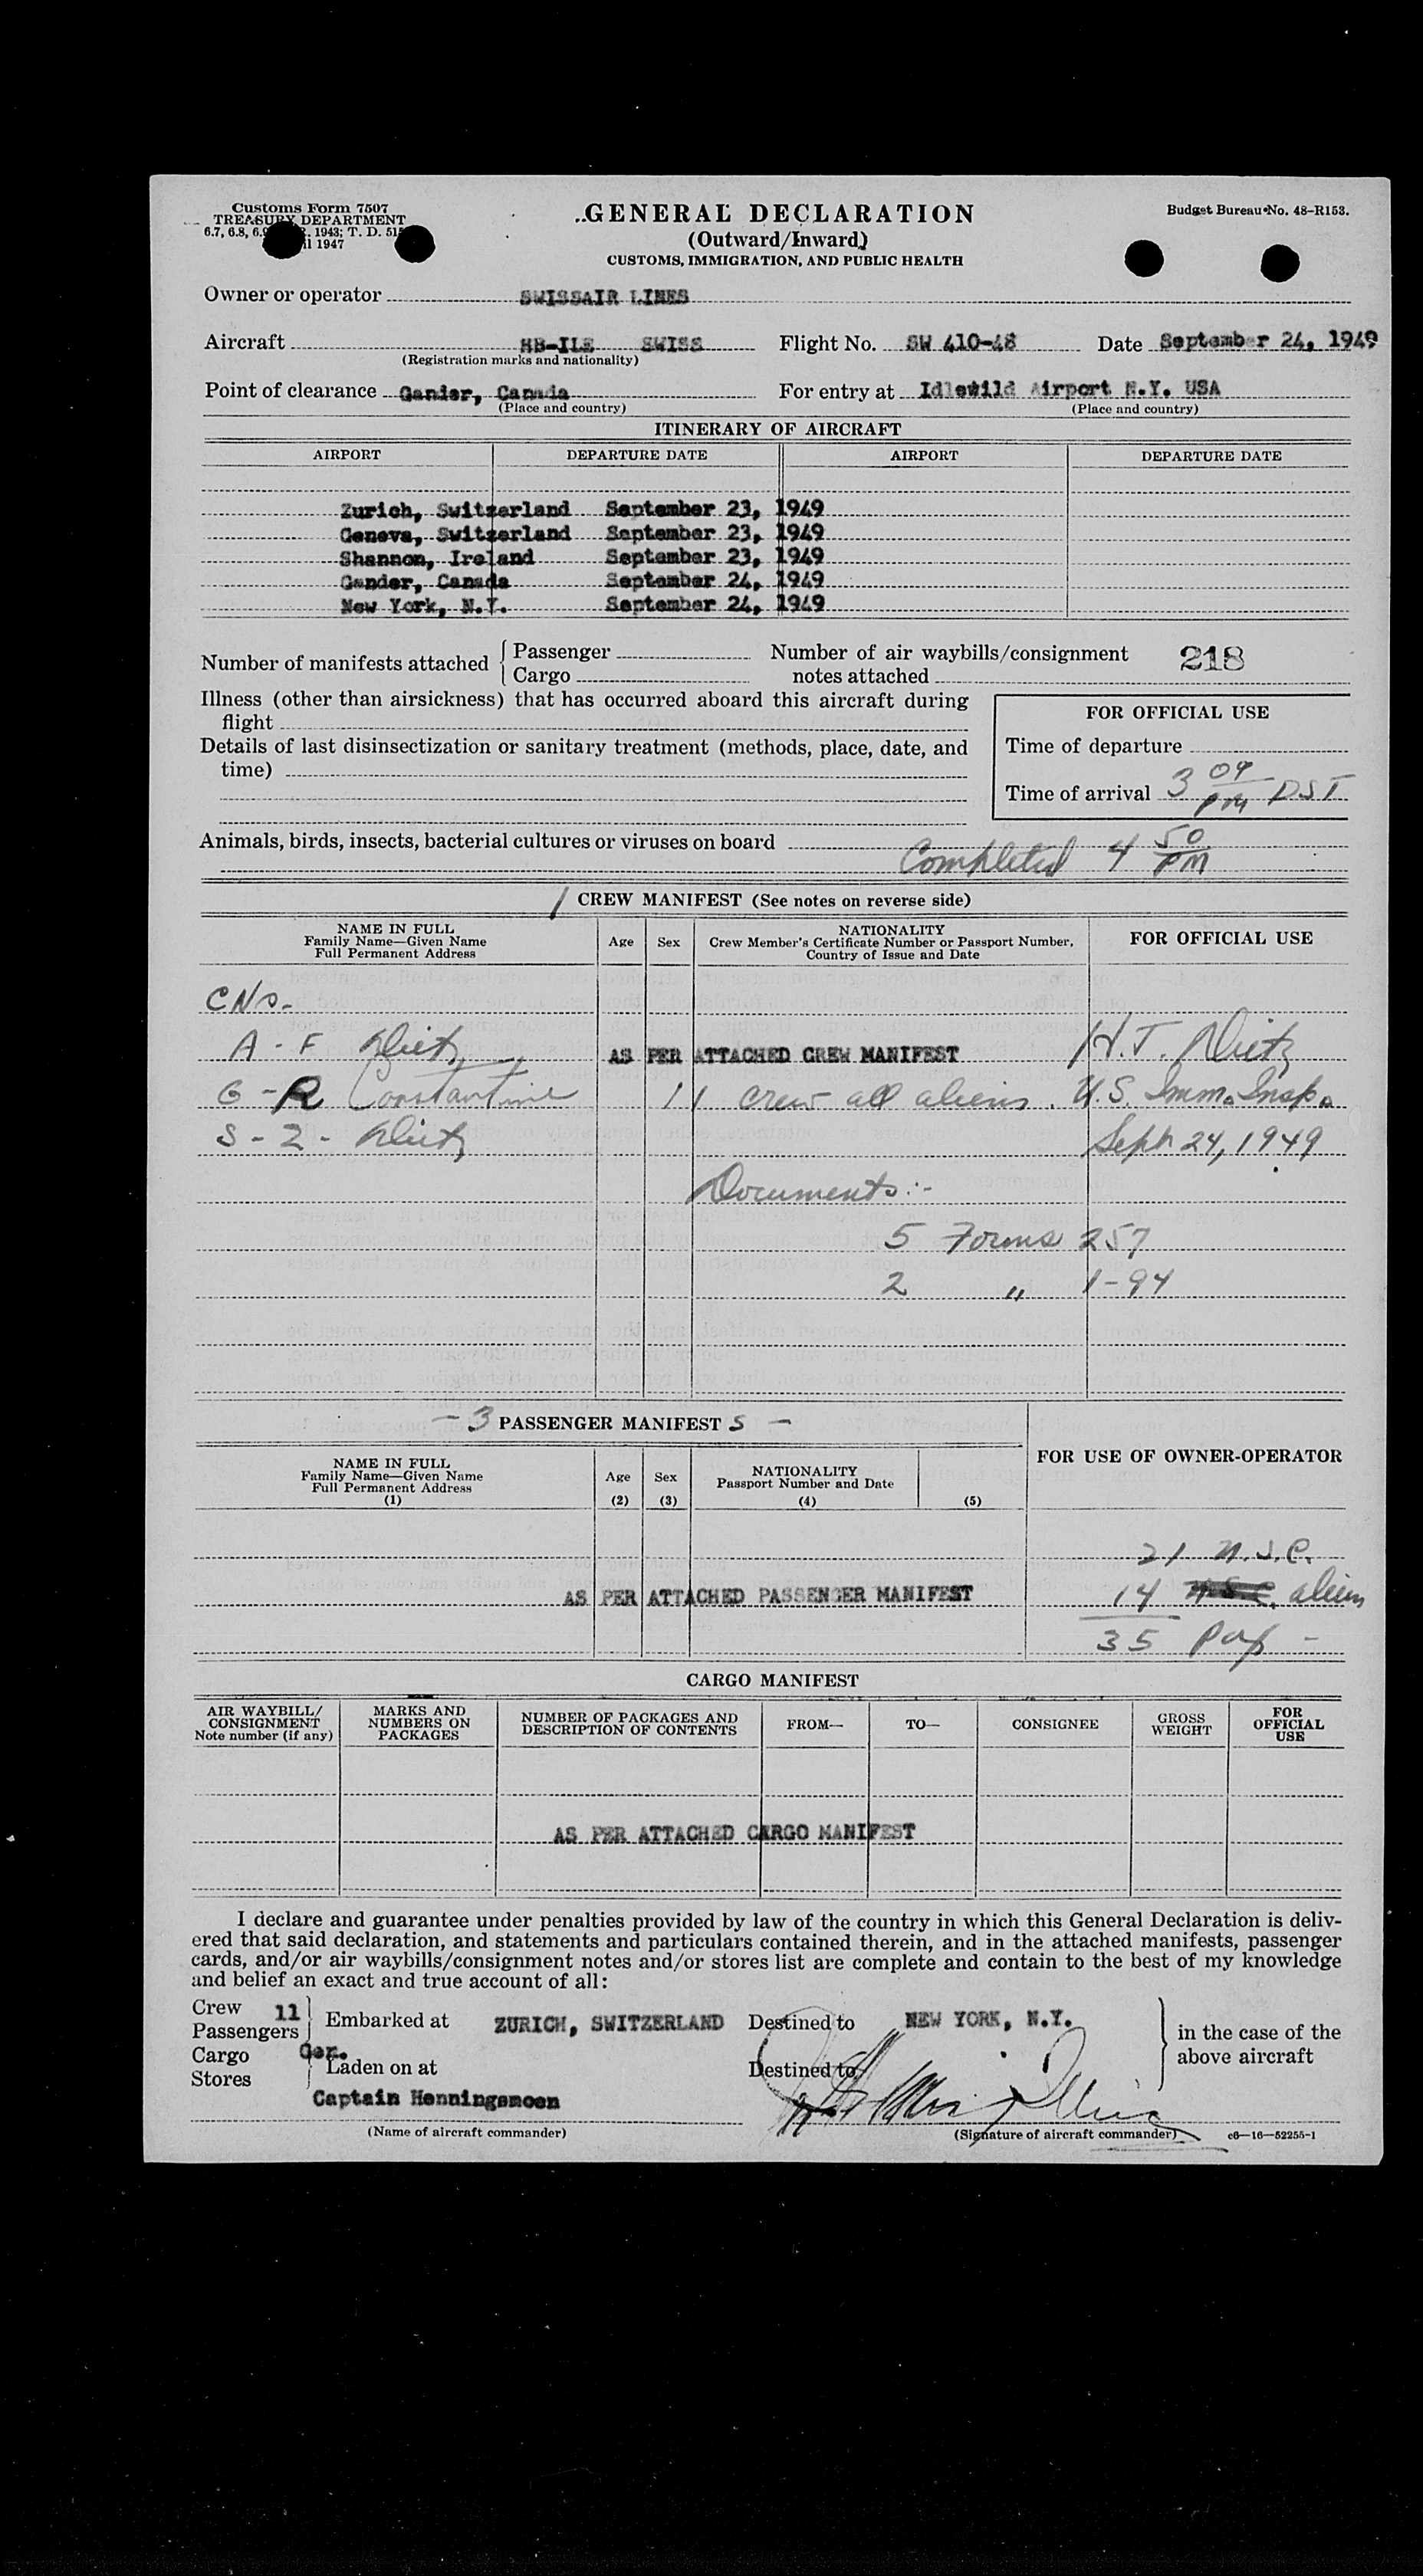 Customs Form 7507
TREASURY DEPARTMENT
6.7, 6.8, 1943; T. D.
1947
GENERAL DECLARATION
(Outward/Inward)
CUSTOMS, IMMIGRATION, AND PUBLIC HEALTH
Budget Bureau No. 48-R153.
Owner or operator SWISSAIR LINES
Aircraft HB-ILE SWISS Flight No. SW 410-48 Date September 24, 1949
(Registration marks and nationality)
Point of clearance Gander, Canada For entry at Idlewild Airport N.Y. USA
(Place and country) (Place and country)
ITINERARY OF AIRCRAFT
AIRPORT DEPARTURE DATE AIRPORT DEPARTURE DATE
Zurich, Switzerland September 23, 1949
Geneva, Switzerland September 23, 1949
Shannon, Ireland September 23, 1949
Gander, Canada September 24, 1949
New York, N.Y. September 24, 1949
Number of manifests attached { Passenger
Cargo
Number of air waybills/consignment
notes attached
218
Illness (other than airsickness) that has occurred aboard this aircraft during
flight
Details of last disinsectization or sanitary treatment (methods, place, date, and
time)
FOR OFFICIAL USE
Time of departure
Time of arrival 3 09 PM DST
Animals, birds, insects, bacterial cultures or viruses on board
Completed 4 50 PM
1 CREW MANIFEST (See notes on reverse side)
NAME IN FULL
Family Name—Given Name
Full Permanent Address
Age
Sex
NATIONALITY
Crew Member's Certificate Number or Passport Number,
Country of Issue and Date
FOR OFFICIAL USE
A - F Dietz
AS PER ATTACHED CREW MANIFEST
H.T. Dietz
G - R Constantine
11 crew all aliens.
U.S. Imm. Insp.
S - Z - Dietz
Sept 24, 1949
Documents:-
5 Forms 257
2 " I-94
- 3 PASSENGER MANIFEST S -
NAME IN FULL
Family Name—Given Name
Full Permanent Address
(1)
Age
(2)
Sex
(3)
NATIONALITY
Passport Number and Date
(4)
(5)
FOR USE OF OWNER-OPERATOR
21 U.S.C.
AS PER ATTACHED PASSENGER MANIFEST
14 alien
35 pax -
CARGO MANIFEST
AIR WAYBILL/
CONSIGNMENT
Note number (if any)
MARKS AND
NUMBERS ON
PACKAGES
NUMBER OF PACKAGES AND
DESCRIPTION OF CONTENTS
FROM—
TO—
CONSIGNEE
GROSS
WEIGHT
FOR
OFFICIAL
USE
AS PER ATTACHED CARGO MANIFEST
I declare and guarantee under penalties provided by law of the country in which this General Declaration is deliv-
ered that said declaration, and statements and particulars contained therein, and in the attached manifests, passenger
cards, and/or air waybills/consignment notes and/or stores list are complete and contain to the best of my knowledge
and belief an exact and true account of all:
Crew 11
Passengers
Embarked at ZURICH, SWITZERLAND Destined to NEW YORK, N.Y.
Cargo
Stores
Laden on at
Destined to
in the case of the
above aircraft
Captain Henningsmoen
(Name of aircraft commander)
(Signature of aircraft commander)
c6—16—52255-1